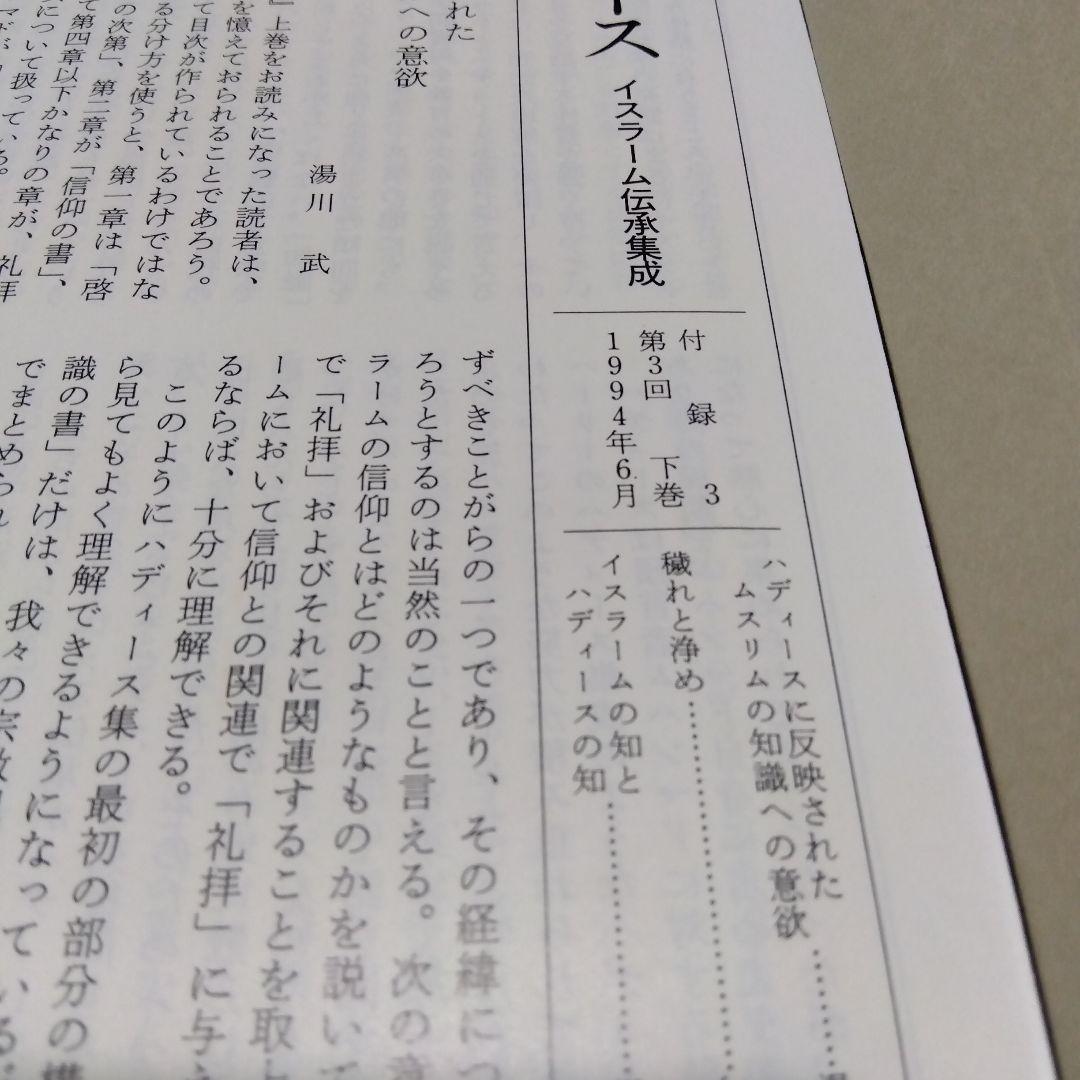 ース イスラーム伝承集成
付録 3
第3回 下巻
1994年6月
ハディースに反映された
ムスリムの知識への意欲
穢れと浄め
イスラームの知と
ハディースの知
された
への意欲
湯川 武
』上巻をお読みになった読者は、
を憶えておられることであろう。
て目次が作られているわけではな
る分け方を使うと、第一章は「啓
の次第」、第二章が「信仰の書」、
て第四章以下かなりの章が、礼拝
について扱って
ずべきことがらの一つであり、その経緯につ
ろうとするのは当然のことと言える。次の章
ラームの信仰とはどのようなものかを説いて
で「礼拝」およびそれに関連することを取
ームにおいて信仰との関連で「礼拝」に与
るならば、十分に理解できる。
このようにハディース集の最初の部分の
ら見てもよく理解できるようになっている
識の書」だけは、我々の宗教
でまとめられ